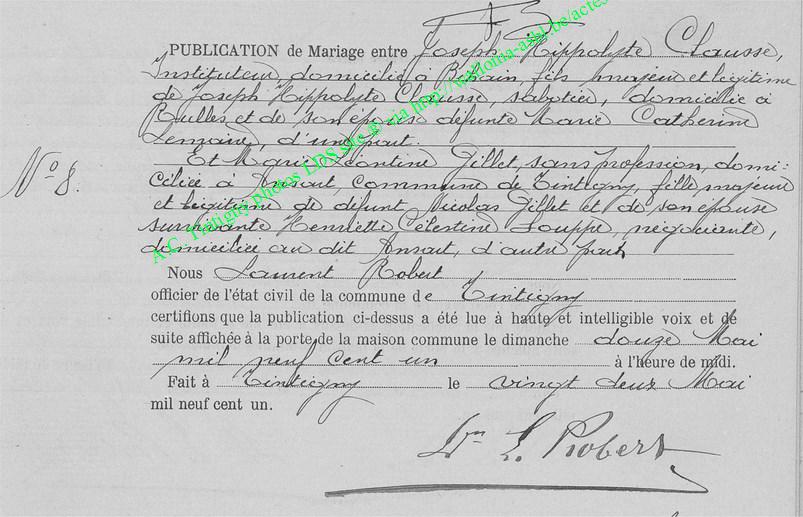 PUBLICATION de Mariage entre Joseph Hippolyte Clausse,
Instituteur, domicilié à Bihain, fils majeur et légitime
de Joseph Hippolyte Clausse, sabotier, domicilié à
Rulles et de son épouse défunte Marie Catherine
Lemaire, d'une part.
Et Marie Léontine Gillet, sans profession, domi-
ciliée à Ansart, commune de Tintigny, fille majeure
et légitime de défunt Nicolas Gillet et de son épouse
survivante Henriette Célestine Pouppe, négociante,
domiciliée au dit Ansart, d'autre part
N° 8.
Nous Laurent Robert
officier de l'état civil de la commune de Tintigny
certifions que la publication ci-dessus a été lue à haute et intelligible voix et de
suite affichée à la porte de la maison commune le dimanche douze Mai
mil neuf cent un à l'heure de midi.
Fait à Tintigny le vingt deux Mai
mil neuf cent un.
Dr L. Robert
A.C. Tintigny photos LDS site @ via http://wallonia-asbl.be/actes